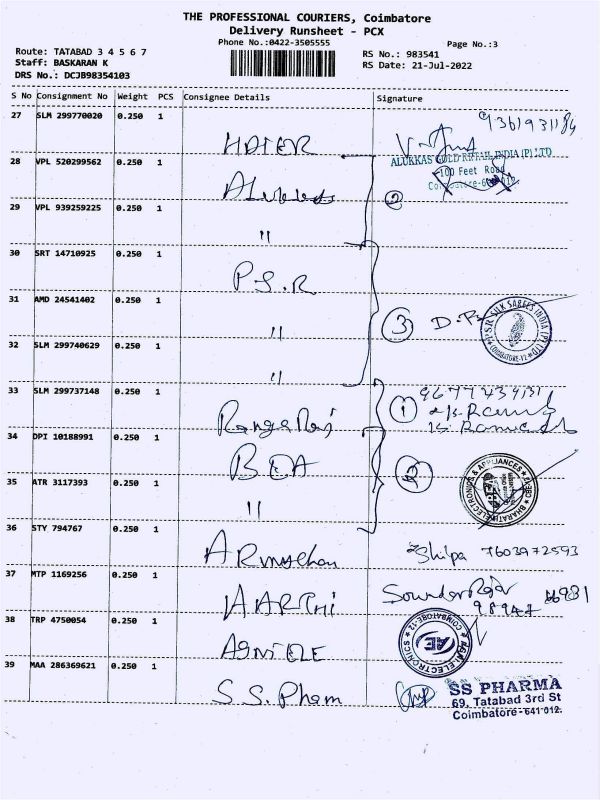 THE PROFESSIONAL COURIERS, Coimbatore
Delivery Runsheet - PCX
Phone No.:0422-3505555
Page No.:3
Route: TATABAD 3 4 5 6 7
Staff: BASKARAN K
DRS No.: DCJB98354103
RS No.: 983541
RS Date: 21-Jul-2022
S No Consignment No Weight PCS Consignee Details Signature
27 SLM 299770020 0.250 1
28 VPL 520299562 0.250 1
ALUKKAS GOLD RETAIL INDIA (P) LTD
100 Feet Road
Coimbatore-641 012
②
29 VPL 939259225 0.250 1 "
30 SRT 14710925 0.250 1 P.S.R
31 AMD 24541402 0.250 1 "
③
P.S.R SILK SAREES INDIA (P) LTD
COIMBATORE-12
32 SLM 299740629 0.250 1 "
33 SLM 299737148 0.250 1 Ranga Raj
①
34 DPI 10188991 0.250 1 BEA
②
35 ATR 3117393 0.250 1 "
BHARATH ELECTRONICS & APPLIANCES
36 STY 794767 0.250 1
Shilpa 7603972593
37 MTP 1169256 0.250 1 AARTHI
38 TRP 4750054 0.250 1
ELECTRONICS COIMBATORE-12
AE
39 MAA 286369621 0.250 1 S.S. Pham
SS PHARMA
69, Tatabad 3rd St
Coimbatore-641 012.